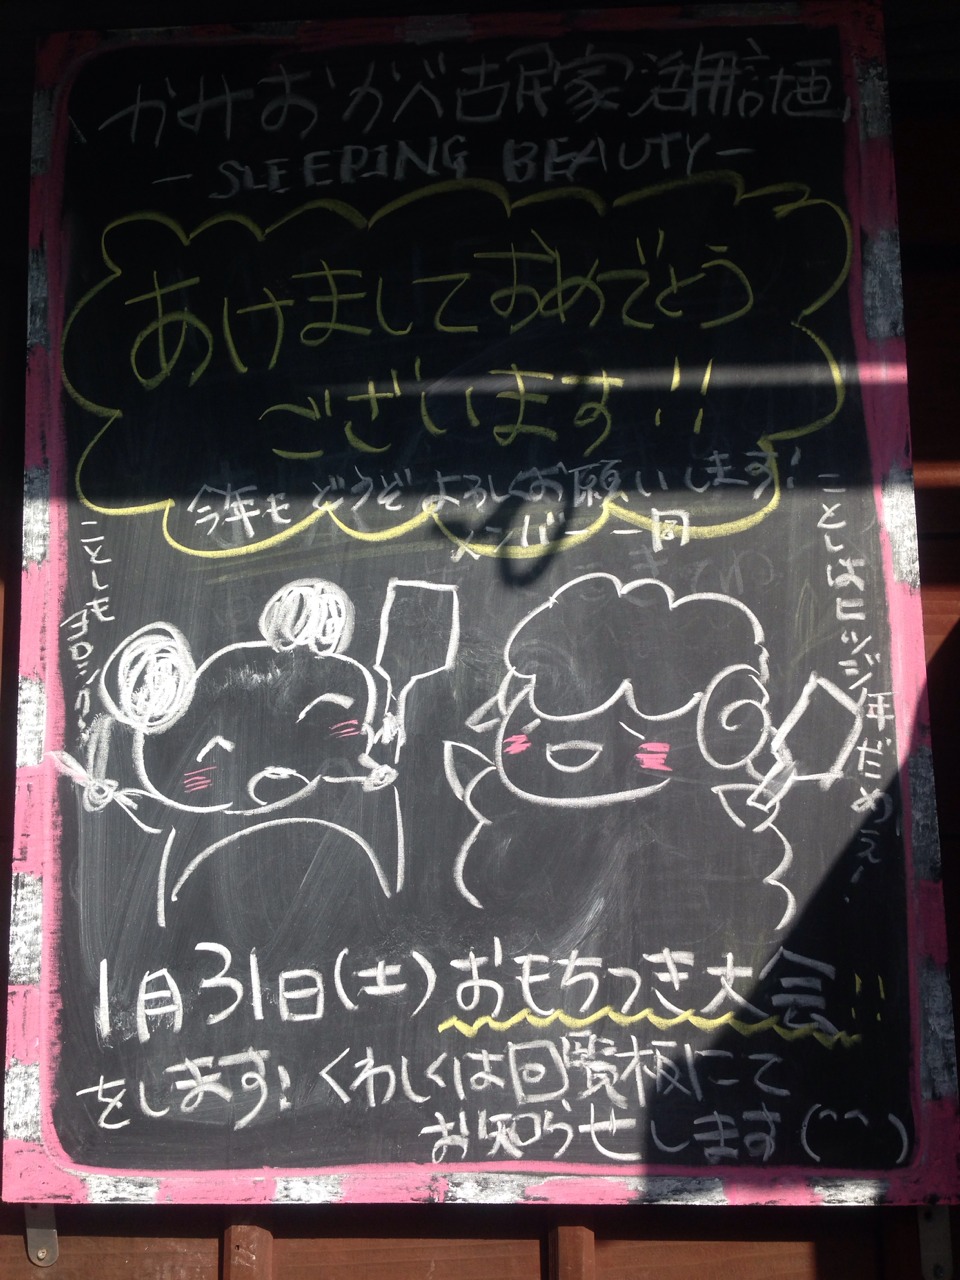 かみおかべ古民家活用計画
- SLEEPING BEAUTY -
あけましておめでとう
ございます!!
今年もどうぞよろしくお願いします!
メンバー一同
ことしも
ヨロシク!
ことしはヒツジ年だめぇ〜
1月31日(土)おもちつき大会!!
をします!くわしくは回覧板にて
お知らせします(^^)